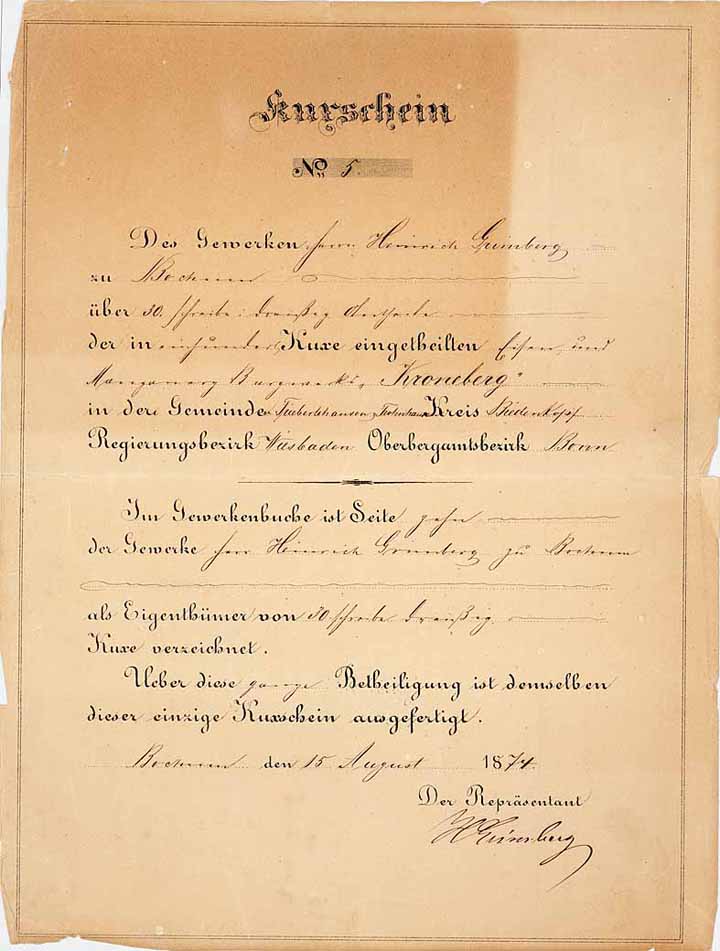 Kuxschein
No 5.
Des Gewerken Herrn Heinrich Grimberg
zu Bochum
über 30. schreibe: dreißig
der in einhundert Kuxe eingetheilten Eisen und
Manganerz Bergwerks „Kroneberg"
in der Gemeinde Kreis Biedenkopf
Regierungsbezirk Wiesbaden Oberbergamtsbezirk Bonn
Im Gewerkenbuche ist Seite zehn
der Gewerke Herr Heinrich Grimberg zu Bochum
als Eigenthümer von 30 schreibe dreißig
Kuxe verzeichnet.
Ueber diese ganze Betheiligung ist demselben
dieser einzige Kuxschein ausgefertigt.
Bochum den 15 August 1874.
Der Repräsentant
H Grimberg